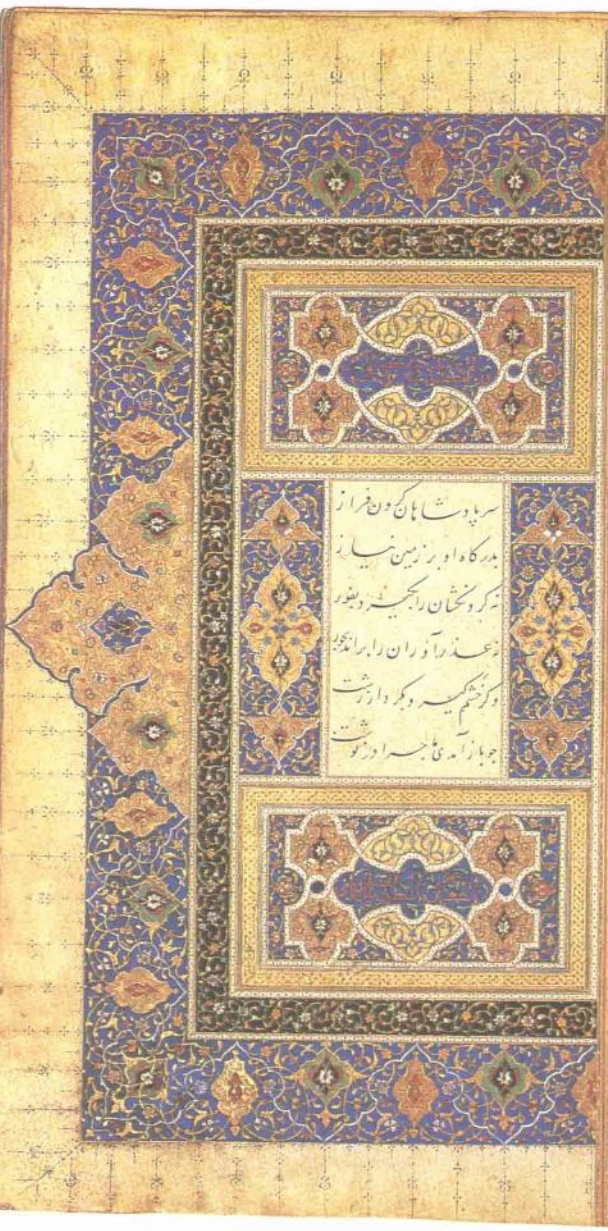 سر پادشاهان گردن فراز
بدرگاه او بر زمین نیاز
نه گردنکشان را بگیرد بفور
نه عذرآوران را براند بجور
وگر خشم گیرد بکردار زشت
چو بازآمدی ماجرا درنوشت